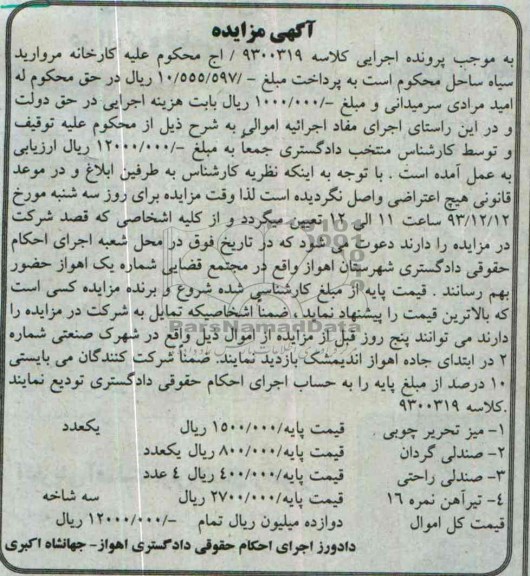 آگهی مزایده
به موجب پرونده اجرایی کلاسه ۹۳۰۰۳۱۹ / اج محکوم علیه کارخانه مروارید
سیاه ساحل محکوم است به پرداخت مبلغ -/۱۰/۵۵۵/۵۹۷ ریال در حق محکوم له
امید مرادی سرمیدانی و مبلغ -/۱۰۰۰/۰۰۰ ریال بابت هزینه اجرایی در حق دولت
و در این راستای اجرای مفاد اجرائیه اموالی به شرح ذیل از محکوم علیه توقیف
و توسط کارشناس منتخب دادگستری جمعاً به مبلغ -/۱۲۰۰۰/۰۰۰ ریال ارزیابی
به عمل آمده است . با توجه به اینکه نظریه کارشناس به طرفین ابلاغ و در موعد
قانونی هیچ اعتراضی واصل نگردیده است لذا وقت مزایده برای روز سه شنبه مورخ
۹۳/۱۲/۱۲ ساعت ۱۱ الی ۱۲ تعیین میگردد و از کلیه اشخاصی که قصد شرکت
در مزایده را دارند دعوت می شود که در تاریخ فوق در محل شعبه اجرای احکام
حقوقی دادگستری شهرستان اهواز واقع در مجتمع قضایی شماره یک اهواز حضور
بهم رسانند . قیمت پایه از مبلغ کارشناسی شده شروع و برنده مزایده کسی است
که بالاترین قیمت را پیشنهاد نماید ، ضمناً اشخاصیکه تمایل به شرکت در مزایده را
دارند می توانند پنج روز قبل از مزایده از اموال ذیل واقع در شهرک صنعتی شماره
۲ در ابتدای جاده اهواز اندیمشک بازدید نمایند. ضمناً شرکت کنندگان می بایستی
۱۰ درصد از مبلغ پایه را به حساب اجرای احکام حقوقی دادگستری تودیع نمایند
.کلاسه ۹۳۰۰۳۱۹
۱- میز تحریر چوبی قیمت پایه/۱۵۰۰/۰۰۰ ریال یکعدد
۲- صندلی گردان قیمت پایه/۸۰۰/۰۰۰ ریال یکعدد
۳- صندلی راحتی قیمت پایه/۴۰۰/۰۰۰ ریال ٤ عدد
٤- تیرآهن نمره ۱۶ قیمت پایه/۲۷۰۰/۰۰۰ ریال سه شاخه
قیمت کل اموال دوازده میلیون ریال تمام -/۱۲۰۰۰/۰۰۰ ریال
دادورز اجرای احکام حقوقی دادگستری اهواز- جهانشاه اکبری
ParsNamadData